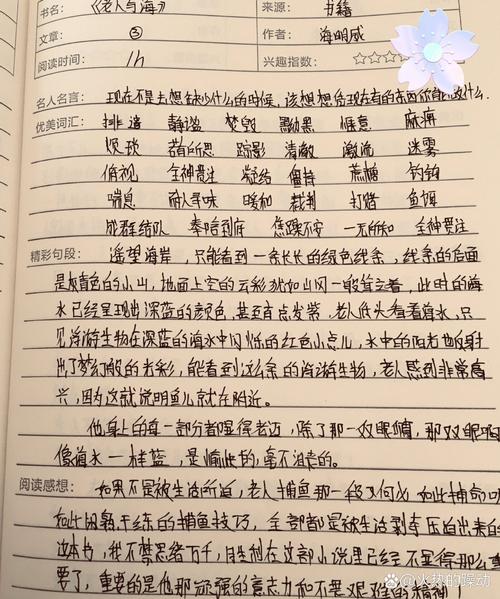 书名：《老人与海》 来源：书籍
文章：③ 作者：海明威
阅读时间：1h 兴趣指数：☆☆☆
名人名言：现在不是去想缺少什么的时候，该想想凭现在有的东西你能做什么.
优美词汇：排遣 静谧 焚毁 黝黑 惬意 麻海
烦琐 若有所思 踪影 清澈 激流 迷雾
俯视 全神贯注 凝结 僵持 蔗糖 钓钩
喘息 耐人寻味 暖和 裁判 打赌 鱼饵
成群结队 奉陪到底 焦躁不安 一无所知 全神贯注
精彩句段：遥望海岸，只能看到一条长长的绿色线条，线条的后面
是灰青色的小山，地面上空的云彩犹如山冈一般耸立着，此时的海
水已经呈现出深蓝的颜色，甚至有点发紫。老人低头看着海水，只
见浮游生物在深蓝的海水中闪烁的红色小点儿，水中的阳光也反射
出了梦幻般的光彩，能看到这么余的浮游生物，老人感到非常高
兴，因为这就说明鱼儿就在附近。
他身上的每一部分都显得老迈，除了那一双眼睛，那双眼啊
像海水一样蓝，是愉快的，毫不沮丧的。
阅读感想：如果不是被生活所迫，老人捕鱼那一段又何必如此捕
如此娴熟干练的捕鱼技巧，全部都是被生活剥夺压迫出来的
这本书，我不禁思绪万千，自生创在这部小说里已经不显得那么重
要了，重要的是他那顽强的意志力和不畏艰难的精神！
@火热的躁动